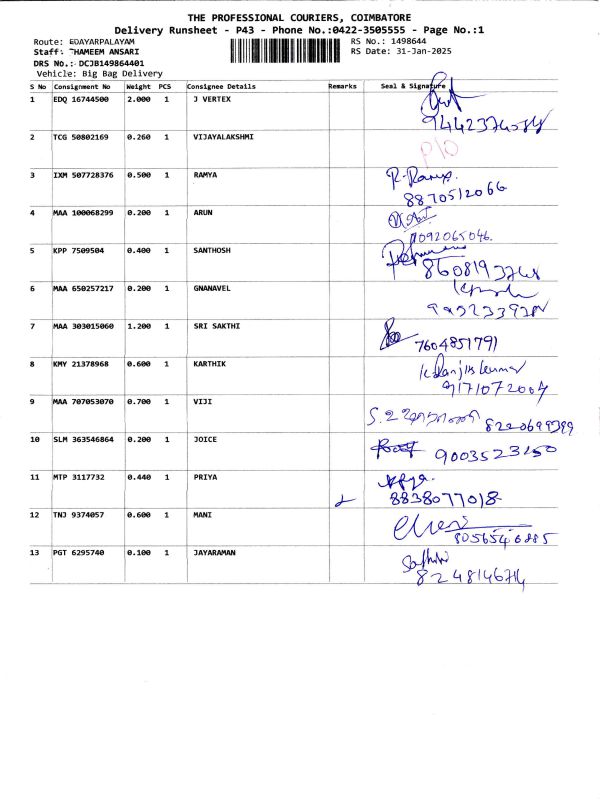 THE PROFESSIONAL COURIERS, COIMBATORE
Delivery Runsheet - P43 - Phone No.:0422-3505555 - Page No.:1
Route: EDAYARPALAYAM
RS No.: 1498644
Staff: THAMEEM ANSARI
RS Date: 31-Jan-2025
DRS No.: DCJB149864401
Vehicle: Big Bag Delivery
S No Consignment No Weight PCS Consignee Details Remarks Seal & Signature
1 EDQ 16744500 2.000 1 J VERTEX
2 TCG 50802169 0.260 1 VIJAYALAKSHMI P/O
3 IXM 507728376 0.500 1 RAMYA R-Ramya.
8870512066
4 MAA 100068299 0.200 1 ARUN
9092065046.
5 KPP 7509504 0.400 1 SANTHOSH
6 MAA 650257217 0.200 1 GNANAVEL
7 MAA 303015060 1.200 1 SRI SAKTHI
7604851791
8 KMY 21378968 0.600 1 KARTHIK K Ranjithkumar
9171072007
9 MAA 707053070 0.700 1 VIJI
8220699399
10 SLM 363546864 0.200 1 JOICE 9003523250
11 MTP 3117732 0.440 1 PRIYA
8838077018
12 TNJ 9374057 0.600 1 MANI
8056546885
13 PGT 6295740 0.100 1 JAYARAMAN
8248146714